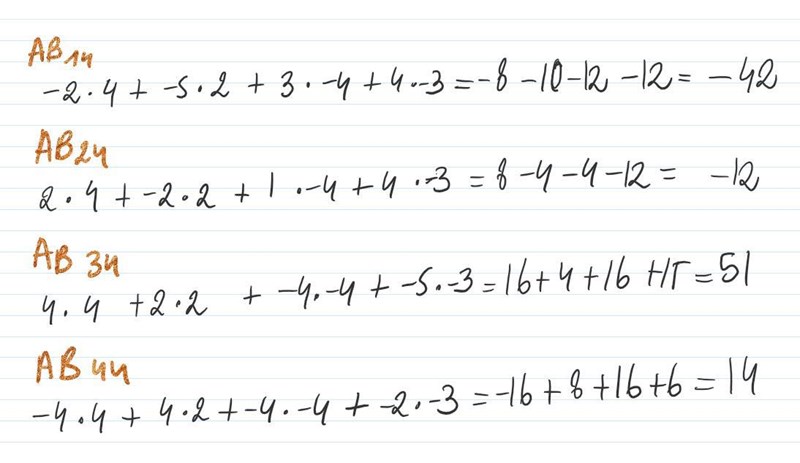 AB14
-2·4 + -5·2 + 3·-4 + 4·-3 = -8 -10 -12 -12 = -42
AB24
2·4 + -2·2 + 1·-4 + 4·-3 = 8 -4 -4 -12 = -12
AB34
4·4 +2·2 + -4·-4 + -5·-3 = 16+4+16 +15 = 51
AB44
-4·4 + 4·2 + -4·-4 + -2·-3 = -16+8+16+6 = 14